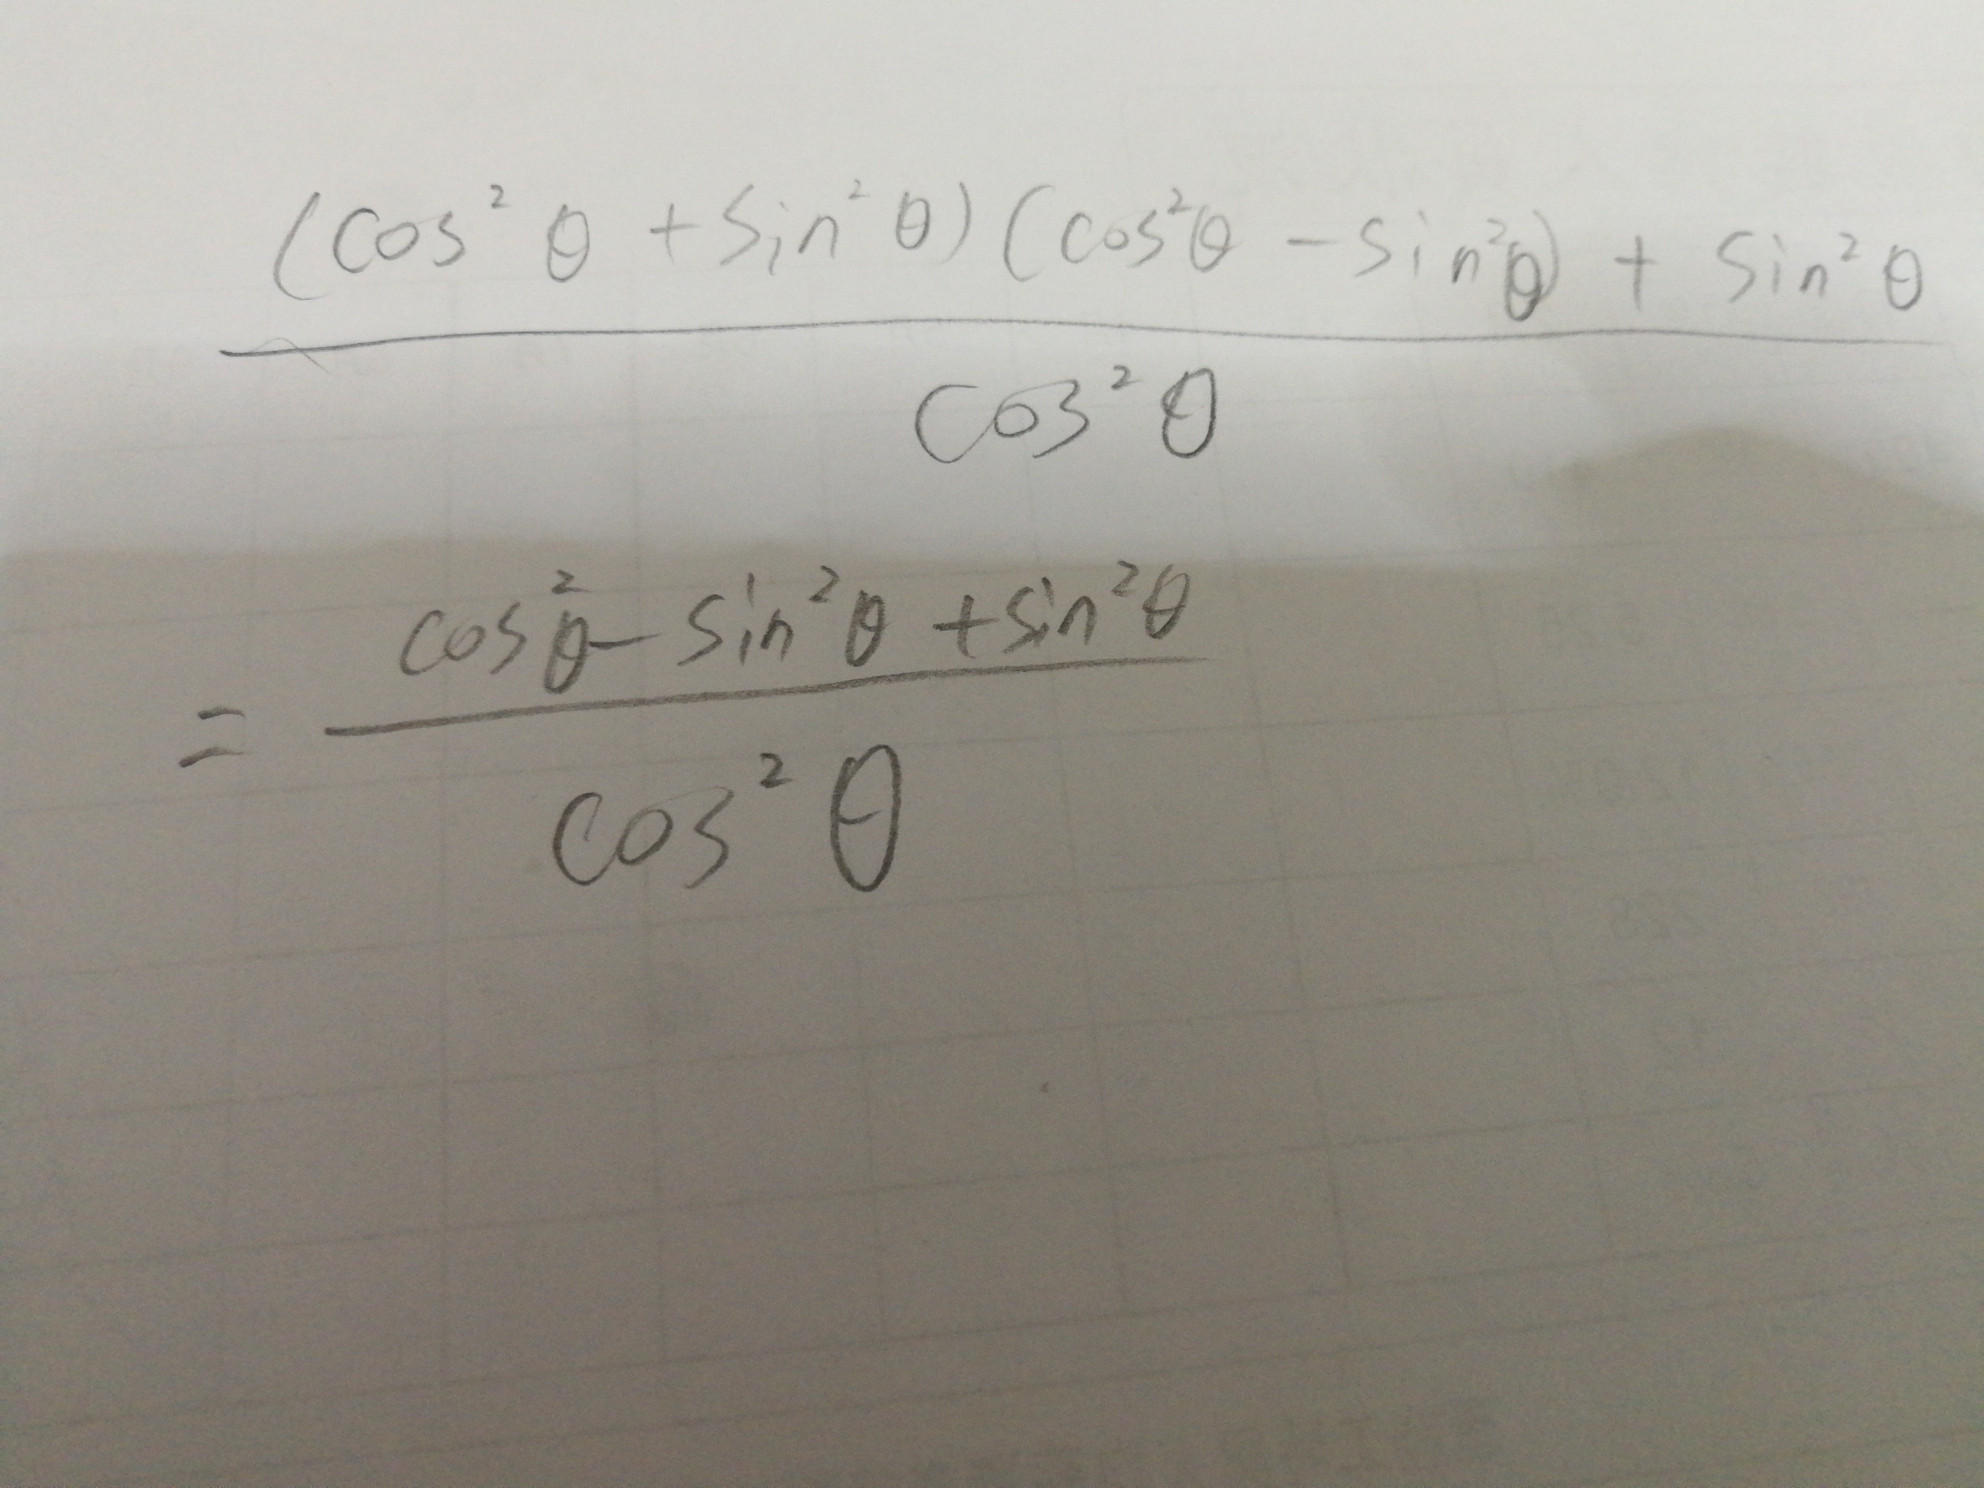 (cos² θ + sin² θ) (cos²θ - sin²θ) + sin² θ
cos² θ
cos²θ - sin²θ + sin²θ
=
cos² θ